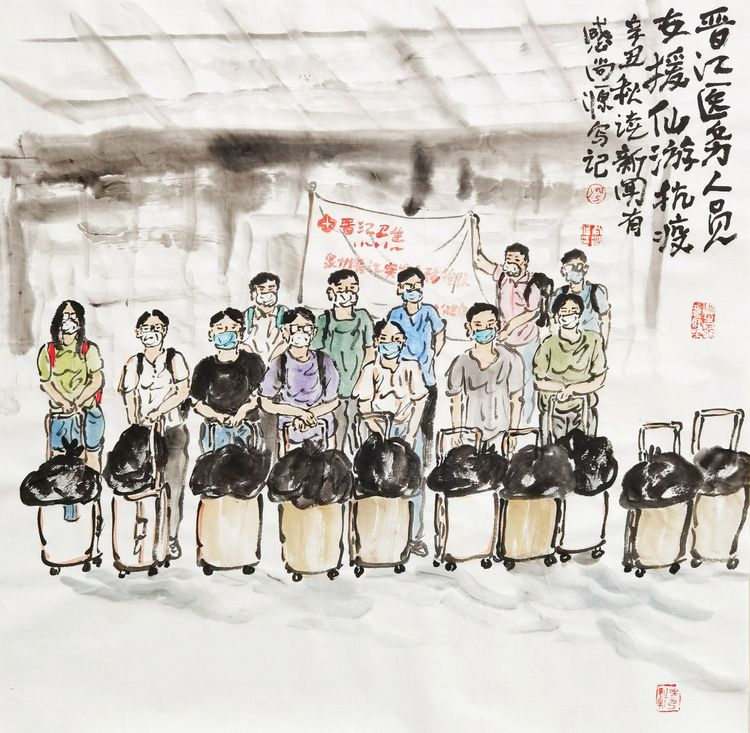 晋江医务人员
支援仙游抗疫
辛丑秋读新闻有
感尚源写记
晋江卫生
泉州晋江